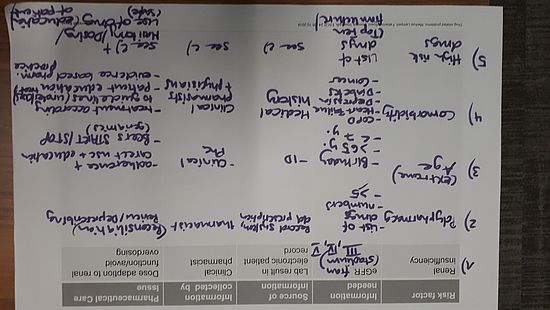 Risk factor
Information needed
Source of Information
Information collected by
Pharmaceutical Care Issue
1) Renal insufficiency
eGFR from (stadium) III, IV, V
Lab result in electronic patient record
Clinical pharmacist
Dose adaption to renal function/avoid overdosing
2) Polypharmacy
- List of drugs
- numbers
>5
Record system, old prescription
Pharmacist
(Reconciliation)
Review/Deprescribing
3) (extreme) Age
- Birthday
- >65 y.
- < 7 y.
- ID
- clinical
- adherence +
correct use + education
- Beers START/STOP
4) Comorbidity
- COPD
- Heart failure
- Depression
- Diabetes
- Cancer
Medical history
Clinical pharmacists
+ physicians
- treatment according
to guidelines
- Patient education
- evidence based
5) High risk drugs
List of drugs
(Top ten
see c)
see c)
see c) +
Monitoring/Dosing/
use of drug (education of patient)
(safe)